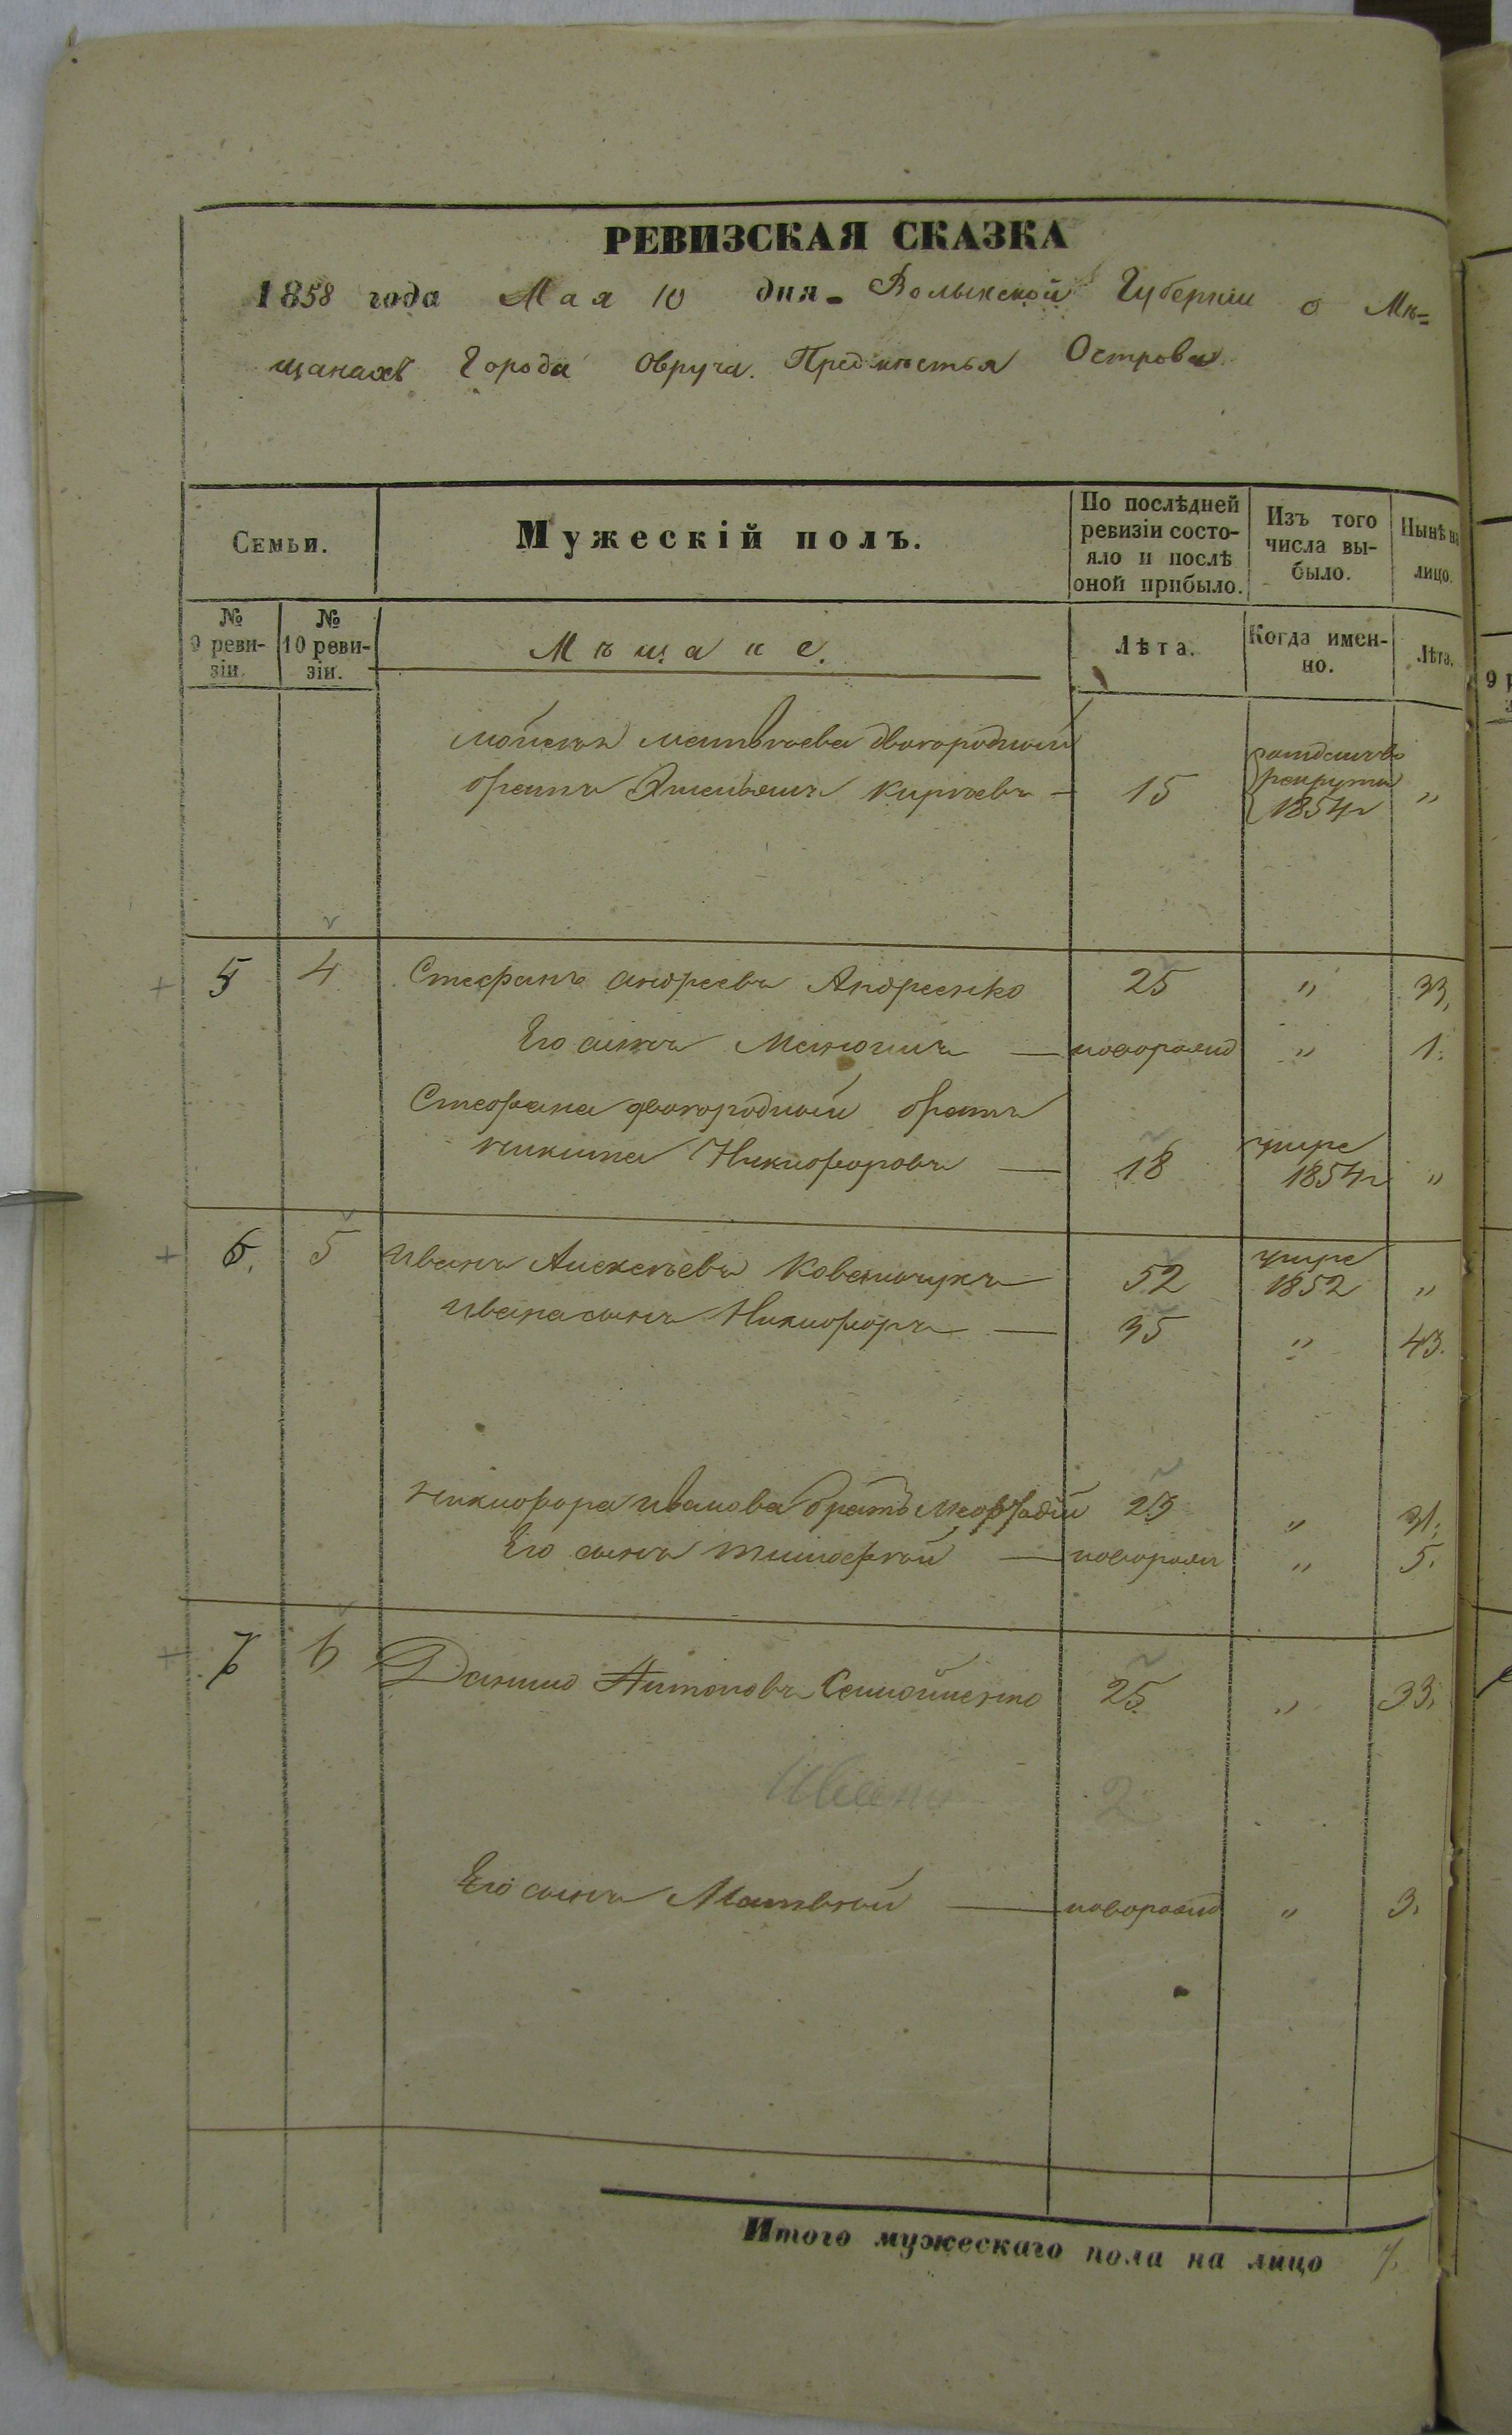 РЕВИЗСКАЯ СКАЗКА
1858 года Мая 10 дня Волынской Губерніи о Мѣ=
щанахъ Города Овруча. Предмѣстья Острова
Семьи. Мужескій полъ. По послѣдней ревизіи состояло и послѣ оной прибыло. Изъ того числа выбыло. Нынѣ на лицо.
№ 9 ревизіи. № 10 ревизіи. Мѣщане. Лѣта. Когда именно. Лѣта.
Мойсея Матвѣева двоюродный
братъ Емельянъ Кирѣевъ 15 рекруты 1854 "
5 4 Стефанъ Андреевъ Андреенко 25 " 33,
Его сынъ новорожд " 1.
Стефана двоюродный братъ
Никита Никифоровъ 18 умре 1854 "
6. 5 Иванъ Алексѣевъ 52 умре 1852 "
Ивана сынъ Никифоръ 35 " 43.
Никифора Иванова братъ 23 " 31.
Его сынъ Тимофѣй новорож " 5.
7 6 Данило Антоновъ 25 " 33.
Иванъ 2
Его сынъ Матвѣй новорожд " 3.
Итого мужескаго пола на лицо 7.
9